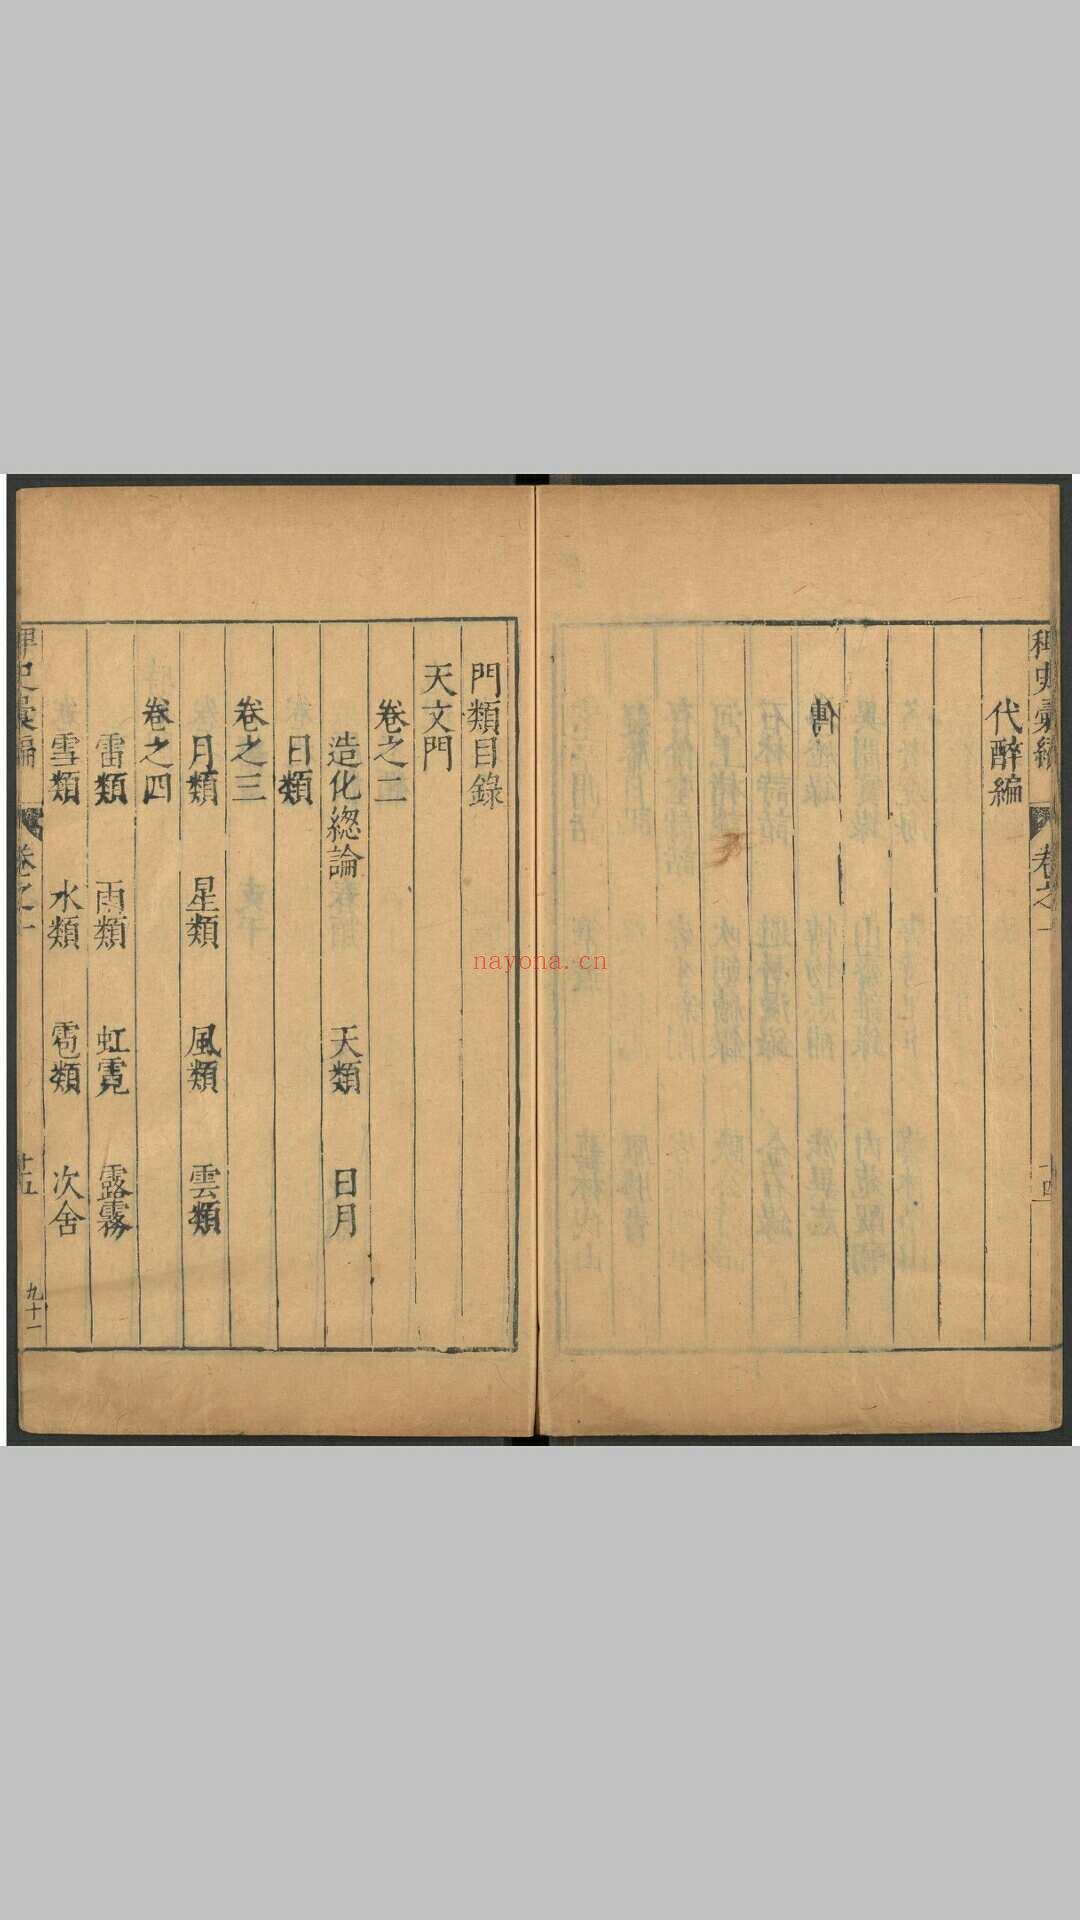 稗史彙編 卷之一 十四
代醉編
傳
門類目錄
天文門
卷之二
造化総論 天類 日月
日類
卷之三
月類 星類 風類 雲類
卷之四
雷類 雨類 虹霓 露霧
雪類 水類 雹類 次舍
稗史彙編 卷之一 十五 九十一
nayona.cn